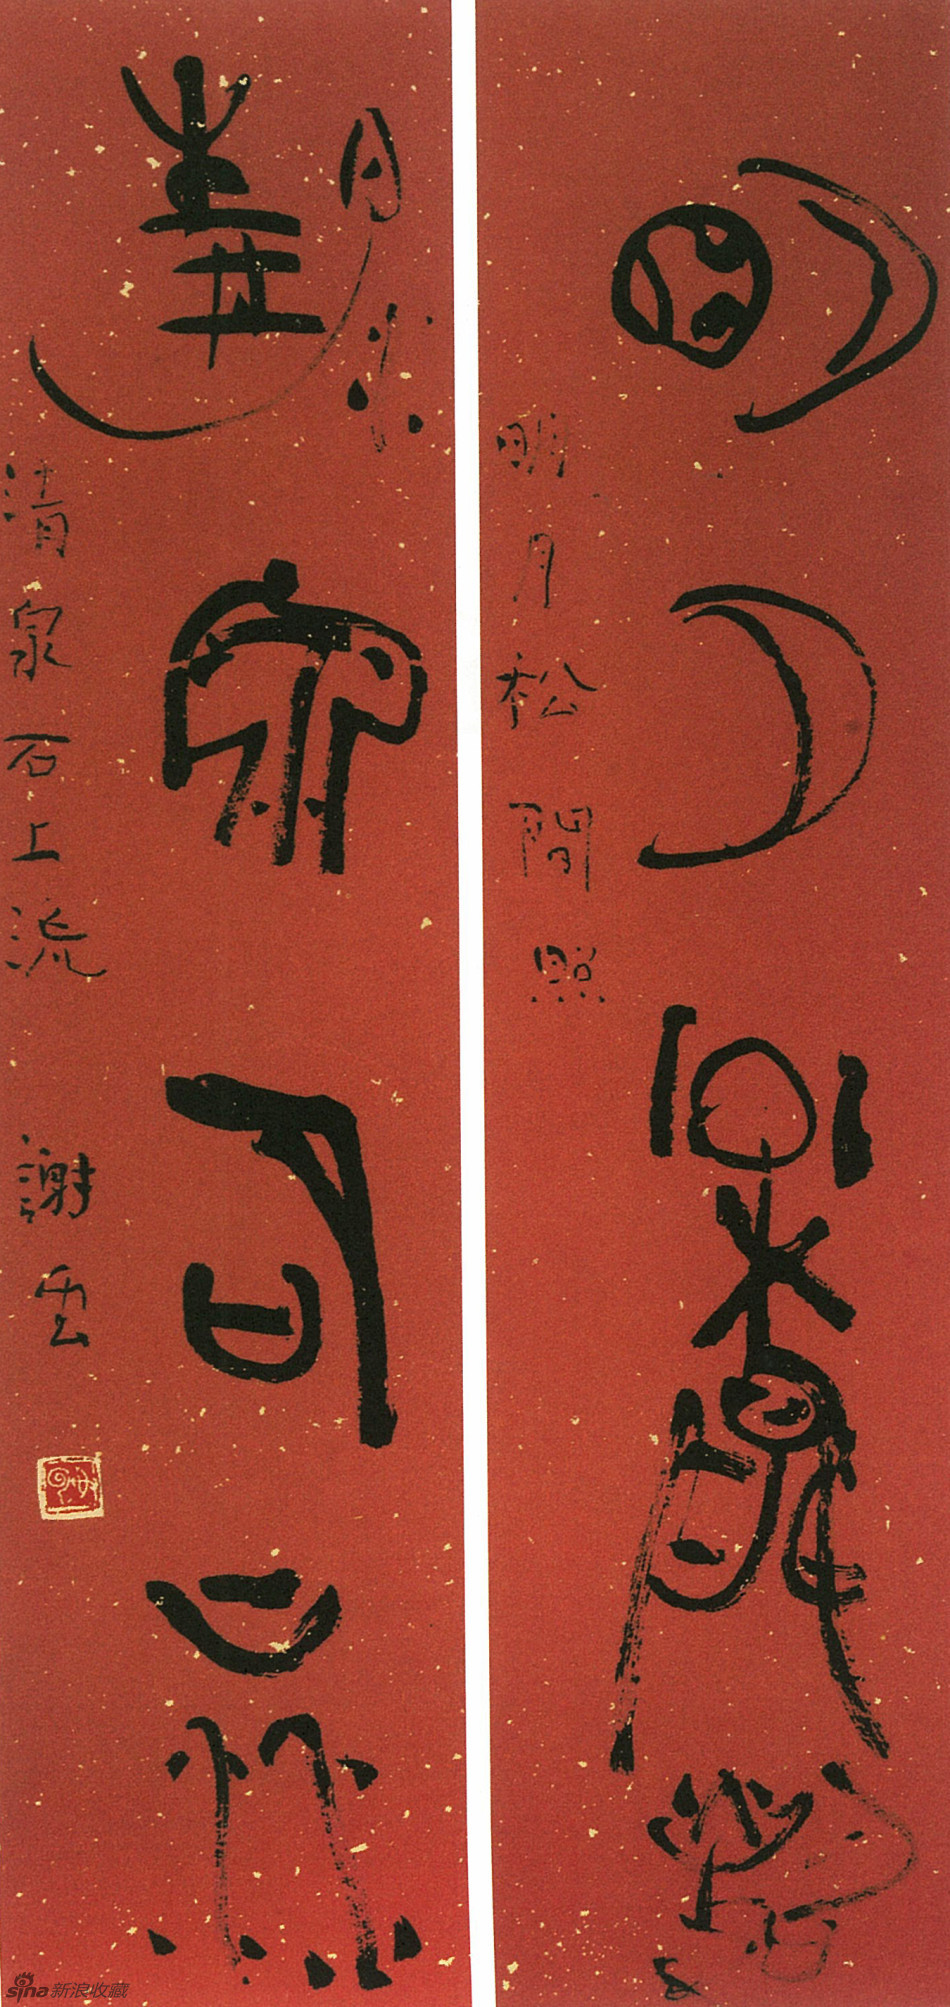 明月松間照
明月松間照
清泉石上流
清泉石上流
謝雲
sina新浪收藏